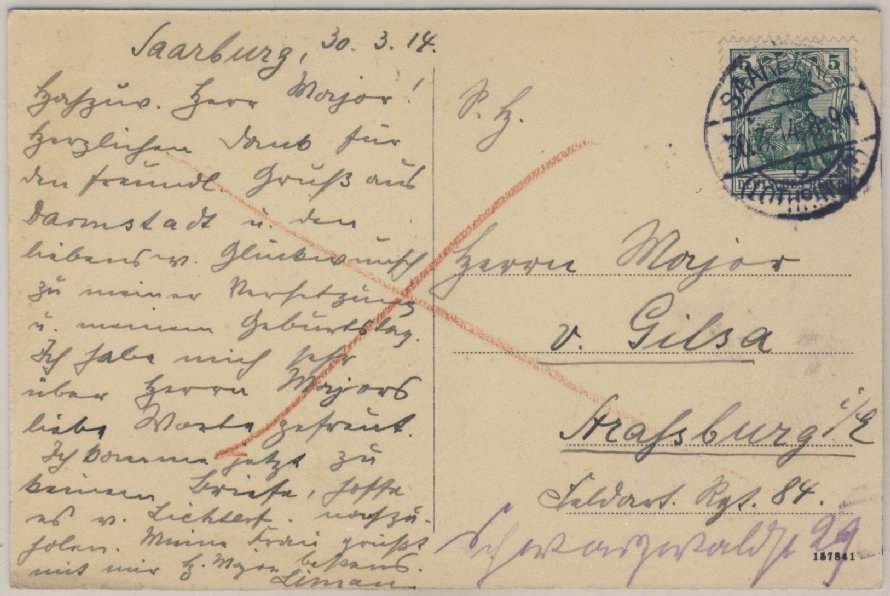 Saarburg, 30. 3. 14.
Hochzuv. Herr Major!
Herzlichen Dank für
den freundl. Gruß aus
Darmstadt u. den
liebensw. Glückwunsch
zu meiner Versetzung
u. meinem Geburtstag.
Ich habe mich sehr
über Herrn Majors
liebe Worte gefreut.
Ich komme jetzt zu
keinem Briefe, hoffe
es v. Lichterf. nachzu-
holen. Meine Frau grüßt
mit mir H. Major bestens.
Liman
S. H.
5 5
SAARBURG
(LOTHRINGEN)
Herrn Major
v. Gilsa
Strassburg i/E
Feldart. Rgt. 84.
Schwarzwaldst 29
157841